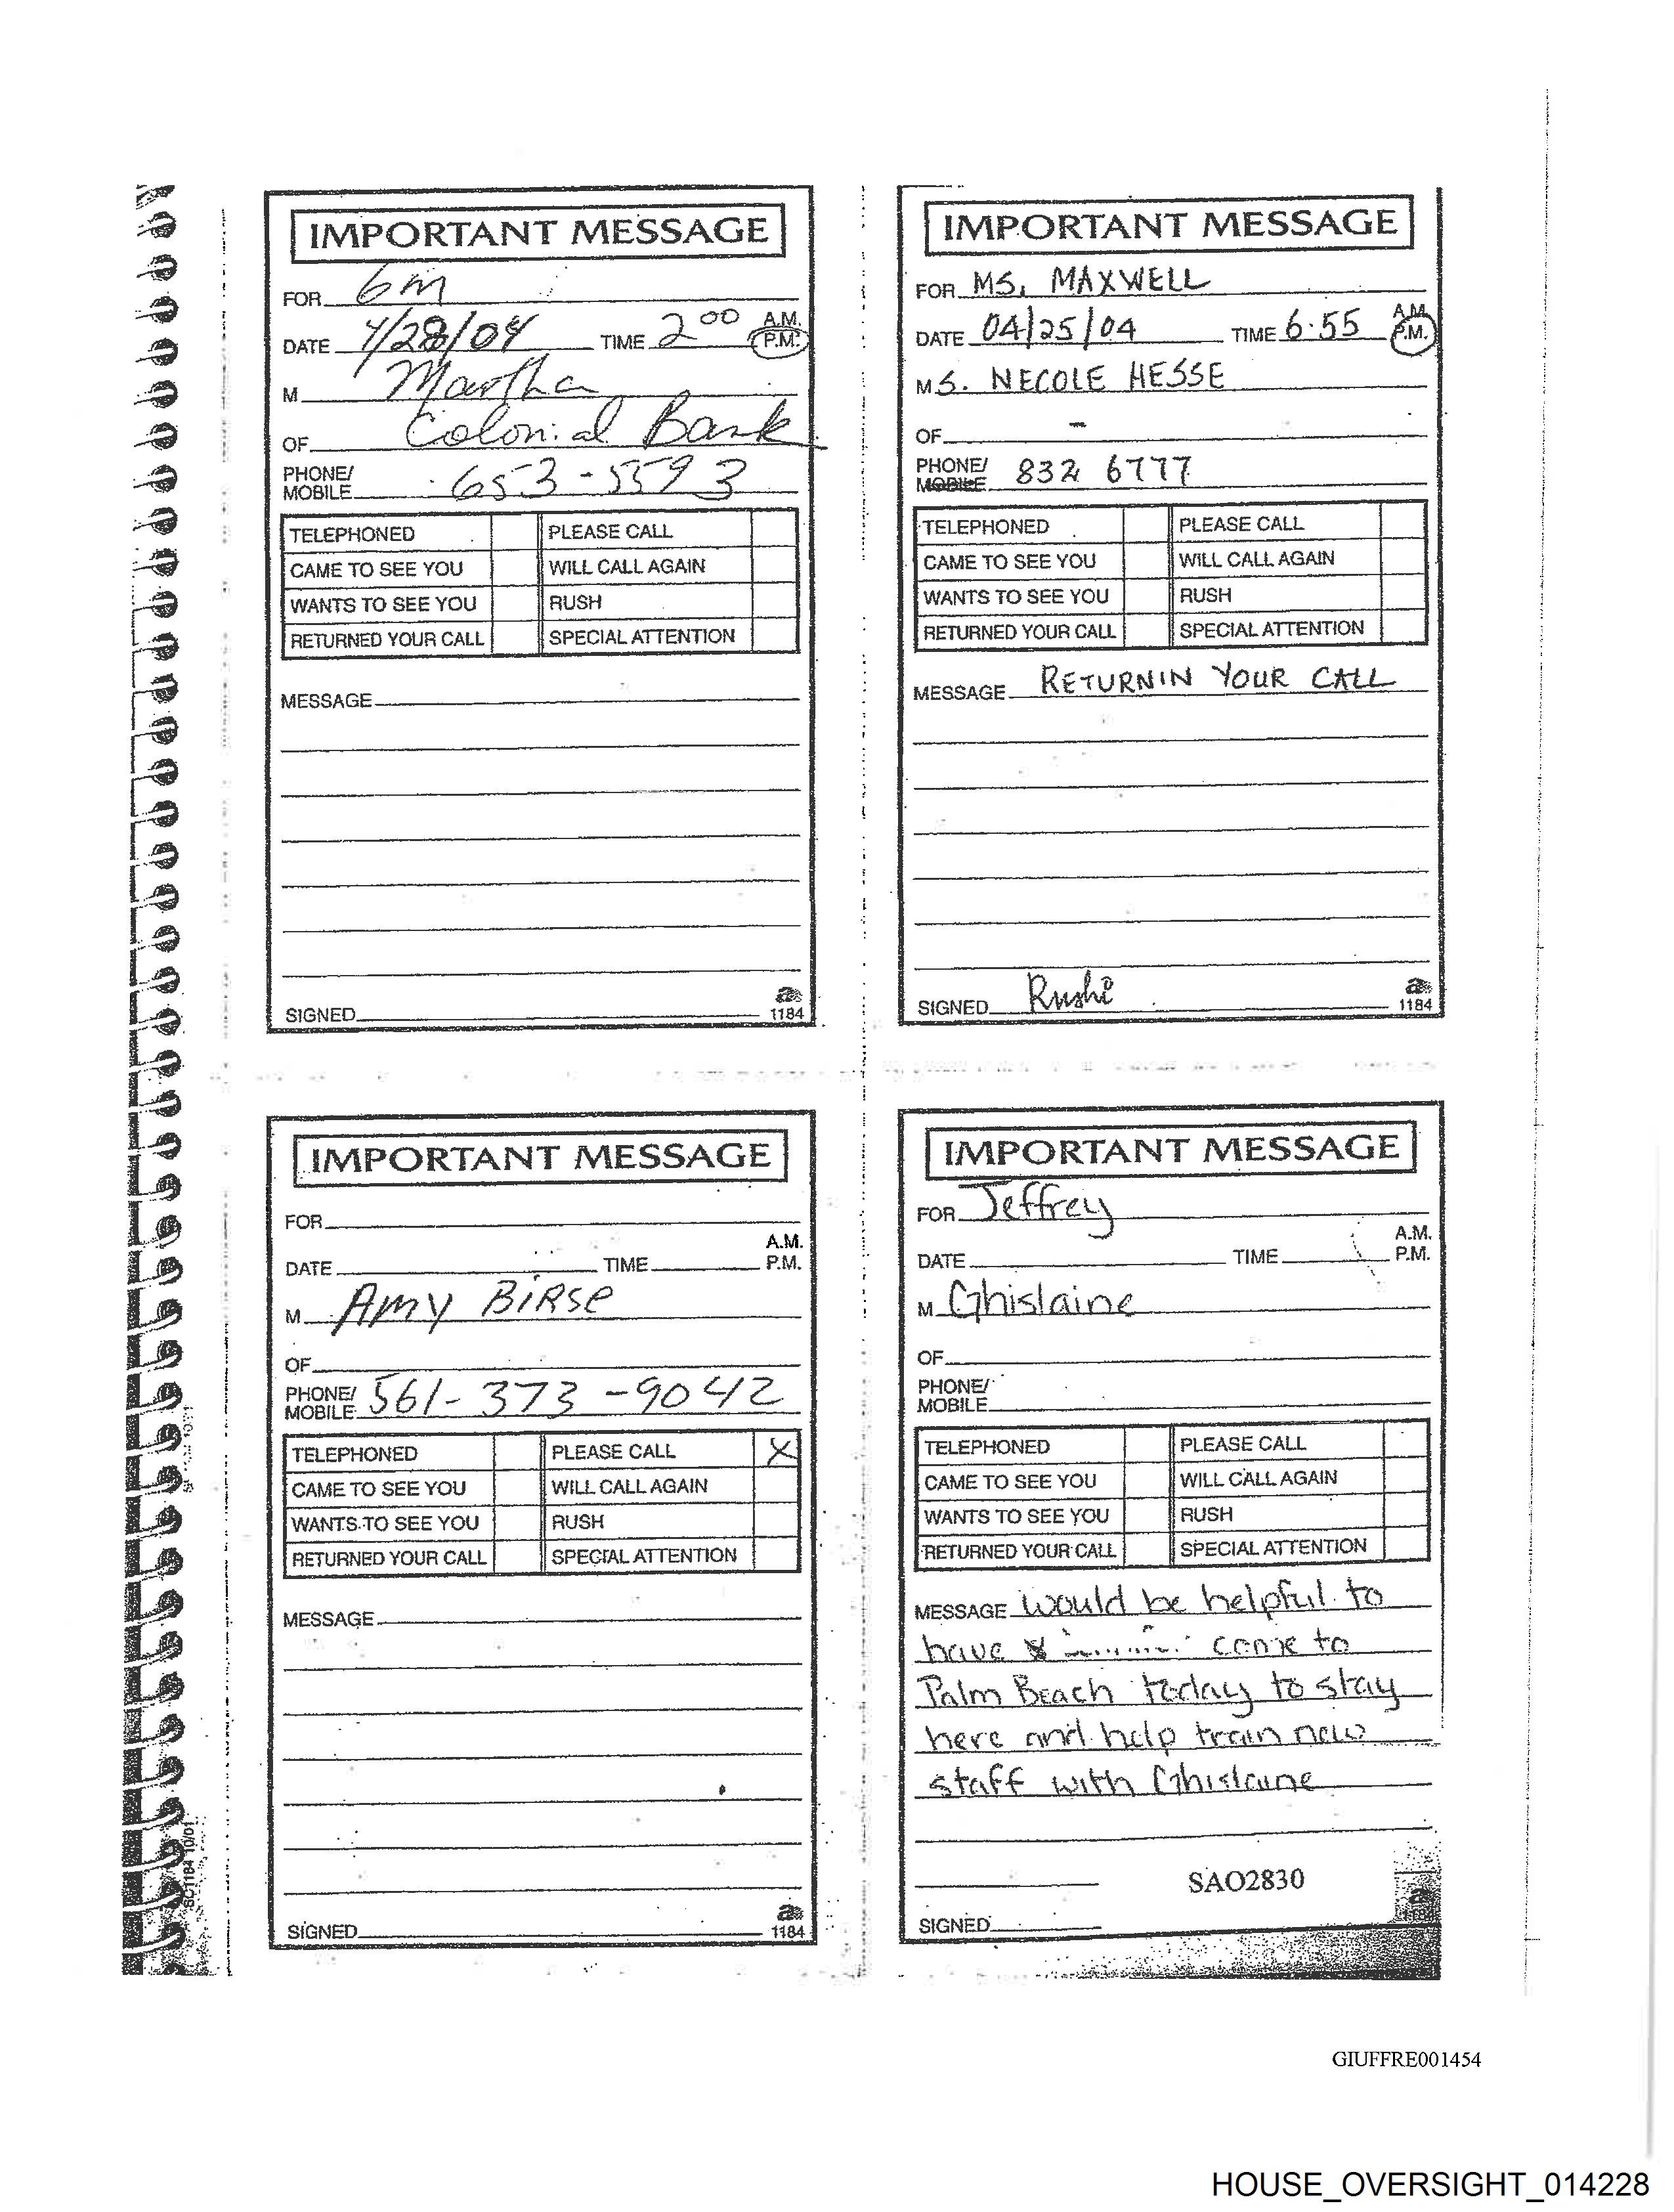 IMPORTANT MESSAGE
FOR GM
DATE 4/28/04 TIME 2 00 A.M. P.M.
M Martha
OF Colonial Bank
PHONE/ MOBILE 653-5593
TELEPHONED PLEASE CALL
CAME TO SEE YOU WILL CALL AGAIN
WANTS TO SEE YOU RUSH
RETURNED YOUR CALL SPECIAL ATTENTION
MESSAGE
SIGNED
1184
IMPORTANT MESSAGE
FOR MS. MAXWELL
DATE 04/25/04 TIME 6:55 A.M. P.M.
MS. NECOLE HESSE
OF -
PHONE/ MOBILE 832 6777
TELEPHONED PLEASE CALL
CAME TO SEE YOU WILL CALL AGAIN
WANTS TO SEE YOU RUSH
RETURNED YOUR CALL SPECIAL ATTENTION
MESSAGE RETURNIN YOUR CALL
SIGNED Rushi
1184
IMPORTANT MESSAGE
FOR
DATE TIME A.M. P.M.
M Amy BiRse
OF
PHONE/ MOBILE 561-373-9042
TELEPHONED PLEASE CALL X
CAME TO SEE YOU WILL CALL AGAIN
WANTS TO SEE YOU RUSH
RETURNED YOUR CALL SPECIAL ATTENTION
MESSAGE
SIGNED
1184
SC1184 10/01
IMPORTANT MESSAGE
FOR Jeffrey
DATE TIME A.M. P.M.
M Ghislaine
OF
PHONE/ MOBILE
TELEPHONED PLEASE CALL
CAME TO SEE YOU WILL CALL AGAIN
WANTS TO SEE YOU RUSH
RETURNED YOUR CALL SPECIAL ATTENTION
MESSAGE would be helpful to
have come to
Palm Beach today to stay
here and help train new
staff with Ghislaine
SAO2830
SIGNED
1184
GIUFFRE001454
HOUSE_OVERSIGHT_014228